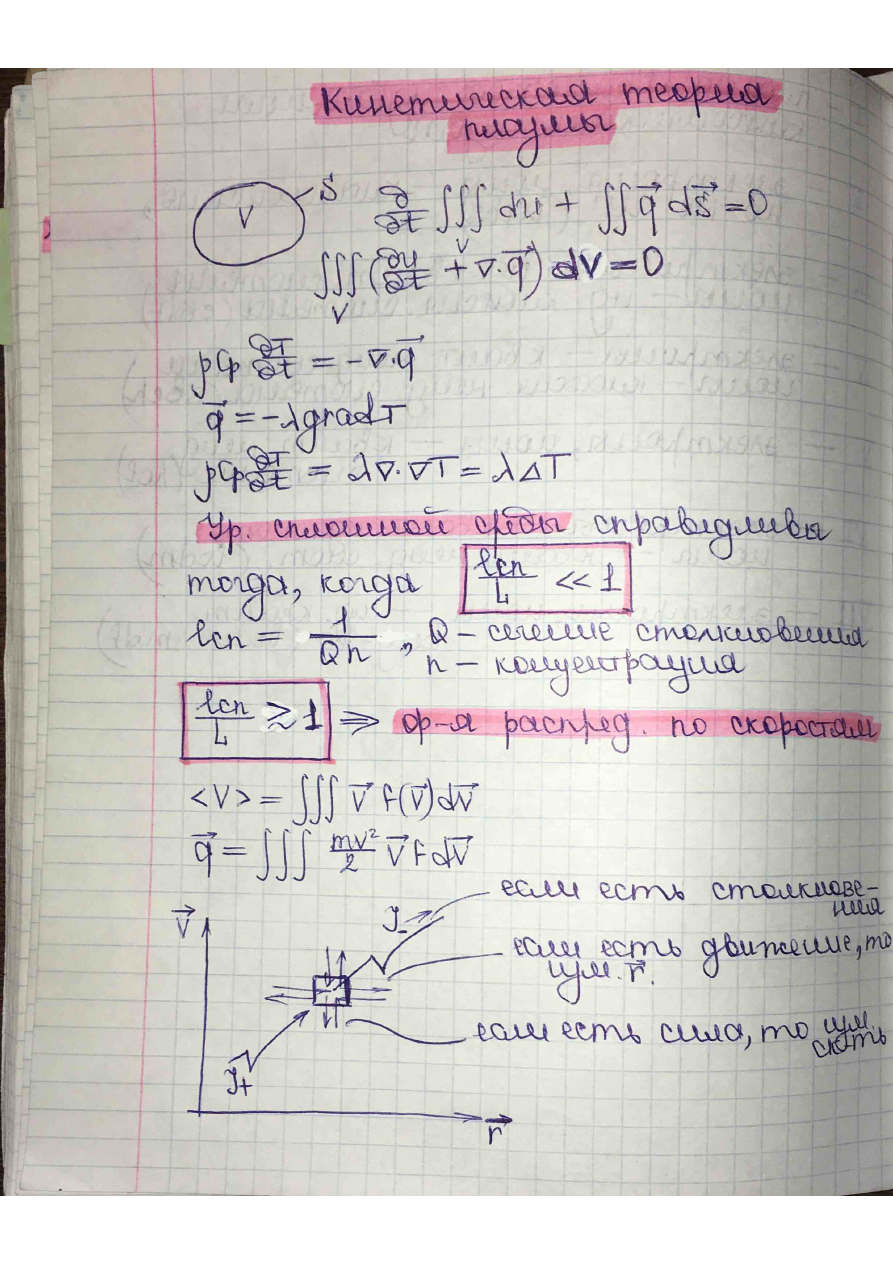 Кинетическая теория
плазмы
V S ∂/∂t ∭_V du + ∬ q⃗ dS⃗ = 0
∭_V (∂u/∂t + ∇·q⃗) dV = 0
ρCp ∂T/∂t = -∇·q⃗
q⃗ = -λgradT
ρCp ∂T/∂t = λ∇·∇T = λΔT
Ур. сплошной среды справидливы
тогда, когда lсп/L << 1
lсп = 1/Qn , Q – сечение столкновения
n – концентрация
lсп/L ≳ 1 ⇒ ф-я распред. по скоростям
<V> = ∭ V⃗ f(V⃗)dV⃗
q⃗ = ∭ mv²/2 V⃗ f dV⃗
если есть столкнове-
ния
V⃗ J₋
если есть движение, то
изм. r⃗.
если есть сила, то изм.
ск-ть
J₊
r⃗